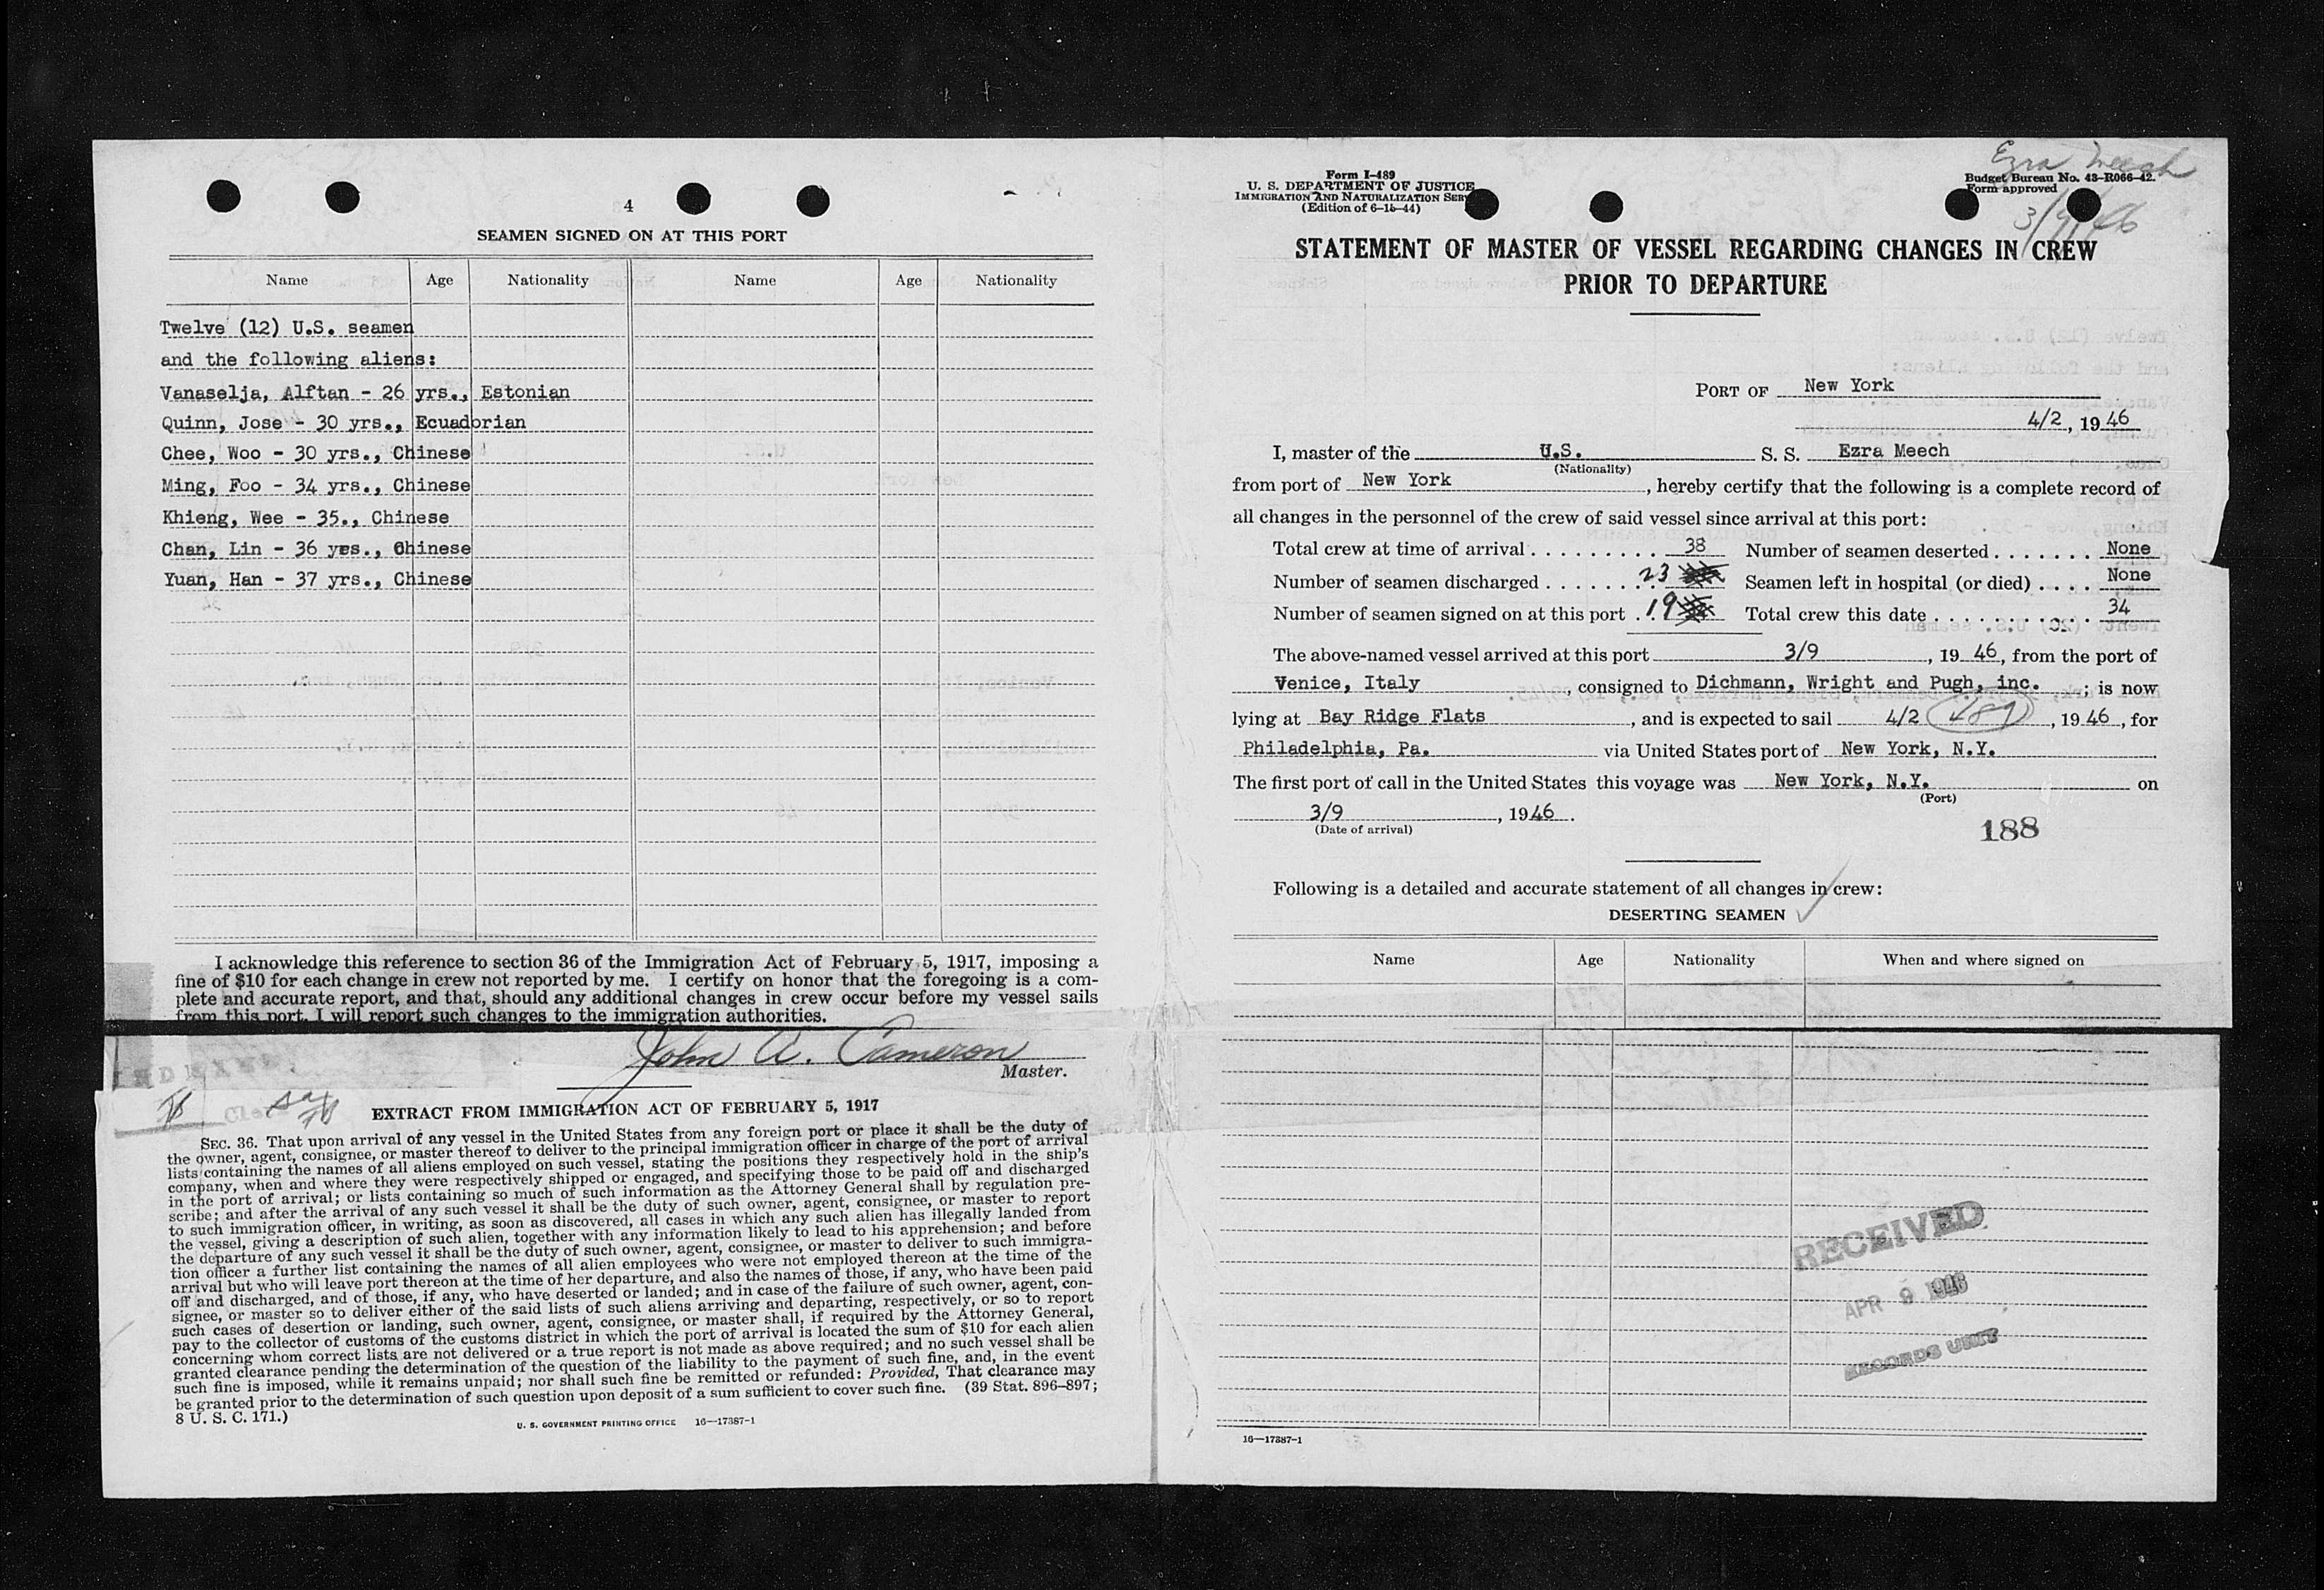 4
SEAMEN SIGNED ON AT THIS PORT
Name Age Nationality Name Age Nationality
Twelve (12) U.S. seamen
and the following aliens:
Vanaselja, Alftan - 26 yrs., Estonian
Quinn, Jose - 30 yrs., Ecuadorian
Chee, Woo - 30 yrs., Chinese
Ming, Foo - 34 yrs., Chinese
Khieng, Wee - 35., Chinese
Chan, Lin - 36 yrs., Chinese
Yuan, Han - 37 yrs., Chinese
I acknowledge this reference to section 36 of the Immigration Act of February 5, 1917, imposing a
fine of $10 for each change in crew not reported by me. I certify on honor that the foregoing is a com-
plete and accurate report, and that, should any additional changes in crew occur before my vessel sails
from this port, I will report such changes to the immigration authorities.
John A. Cameron
Master.
INDEXED
EXTRACT FROM IMMIGRATION ACT OF FEBRUARY 5, 1917
SEC. 36. That upon arrival of any vessel in the United States from any foreign port or place it shall be the duty of
the owner, agent, consignee, or master thereof to deliver to the principal immigration officer in charge of the port of arrival
lists containing the names of all aliens employed on such vessel, stating the positions they respectively hold in the ship's
company, when and where they were respectively shipped or engaged, and specifying those to be paid off and discharged
in the port of arrival; or lists containing so much of such information as the Attorney General shall by regulation pre-
scribe; and after the arrival of any such vessel it shall be the duty of such owner, agent, consignee, or master to report
to such immigration officer, in writing, as soon as discovered, all cases in which any such alien has illegally landed from
the vessel, giving a description of such alien, together with any information likely to lead to his apprehension; and before
the departure of any such vessel it shall be the duty of such owner, agent, consignee, or master to deliver to such immigra-
tion officer a further list containing the names of all alien employees who were not employed thereon at the time of the
arrival but who will leave port thereon at the time of her departure, and also the names of those, if any, who have been paid
off and discharged, and of those, if any, who have deserted or landed; and in case of the failure of such owner, agent, con-
signee, or master so to deliver either of the said lists of such aliens arriving and departing, respectively, or so to report
such cases of desertion or landing, such owner, agent, consignee, or master shall, if required by the Attorney General,
pay to the collector of customs of the customs district in which the port of arrival is located the sum of $10 for each alien
concerning whom correct lists are not delivered or a true report is not made as above required; and no such vessel shall be
granted clearance pending the determination of the question of the liability to the payment of such fine, and, in the event
such fine is imposed, while it remains unpaid; nor shall such fine be remitted or refunded: Provided, That clearance may
be granted prior to the determination of such question upon deposit of a sum sufficient to cover such fine. (39 Stat. 896–897;
8 U. S. C. 171.)
U. S. GOVERNMENT PRINTING OFFICE 16—17387-1
Ezra Meech
3/9/46
Form I-489
U. S. DEPARTMENT OF JUSTICE
IMMIGRATION AND NATURALIZATION SER
(Edition of 6-15-44)
Budget Bureau No. 43-R066-42.
Form approved
STATEMENT OF MASTER OF VESSEL REGARDING CHANGES IN CREW
PRIOR TO DEPARTURE
PORT OF New York
4/2, 1946
I, master of the U.S. S. S. Ezra Meech
(Nationality)
from port of New York, hereby certify that the following is a complete record of
all changes in the personnel of the crew of said vessel since arrival at this port:
Total crew at time of arrival 38 Number of seamen deserted None
Number of seamen discharged 23 Seamen left in hospital (or died) None
Number of seamen signed on at this port 19 Total crew this date 34
The above-named vessel arrived at this port 3/9, 1946, from the port of
Venice, Italy, consigned to Dichmann, Wright and Pugh, inc.; is now
lying at Bay Ridge Flats, and is expected to sail 4/2 489, 1946, for
Philadelphia, Pa. via United States port of New York, N.Y.
The first port of call in the United States this voyage was New York, N.Y. on
(Port)
3/9, 1946.
(Date of arrival)
188
Following is a detailed and accurate statement of all changes in crew:
DESERTING SEAMEN
Name Age Nationality When and where signed on
RECEIVED
APR 9 1946
RECORDS UNIT
16—17387-1